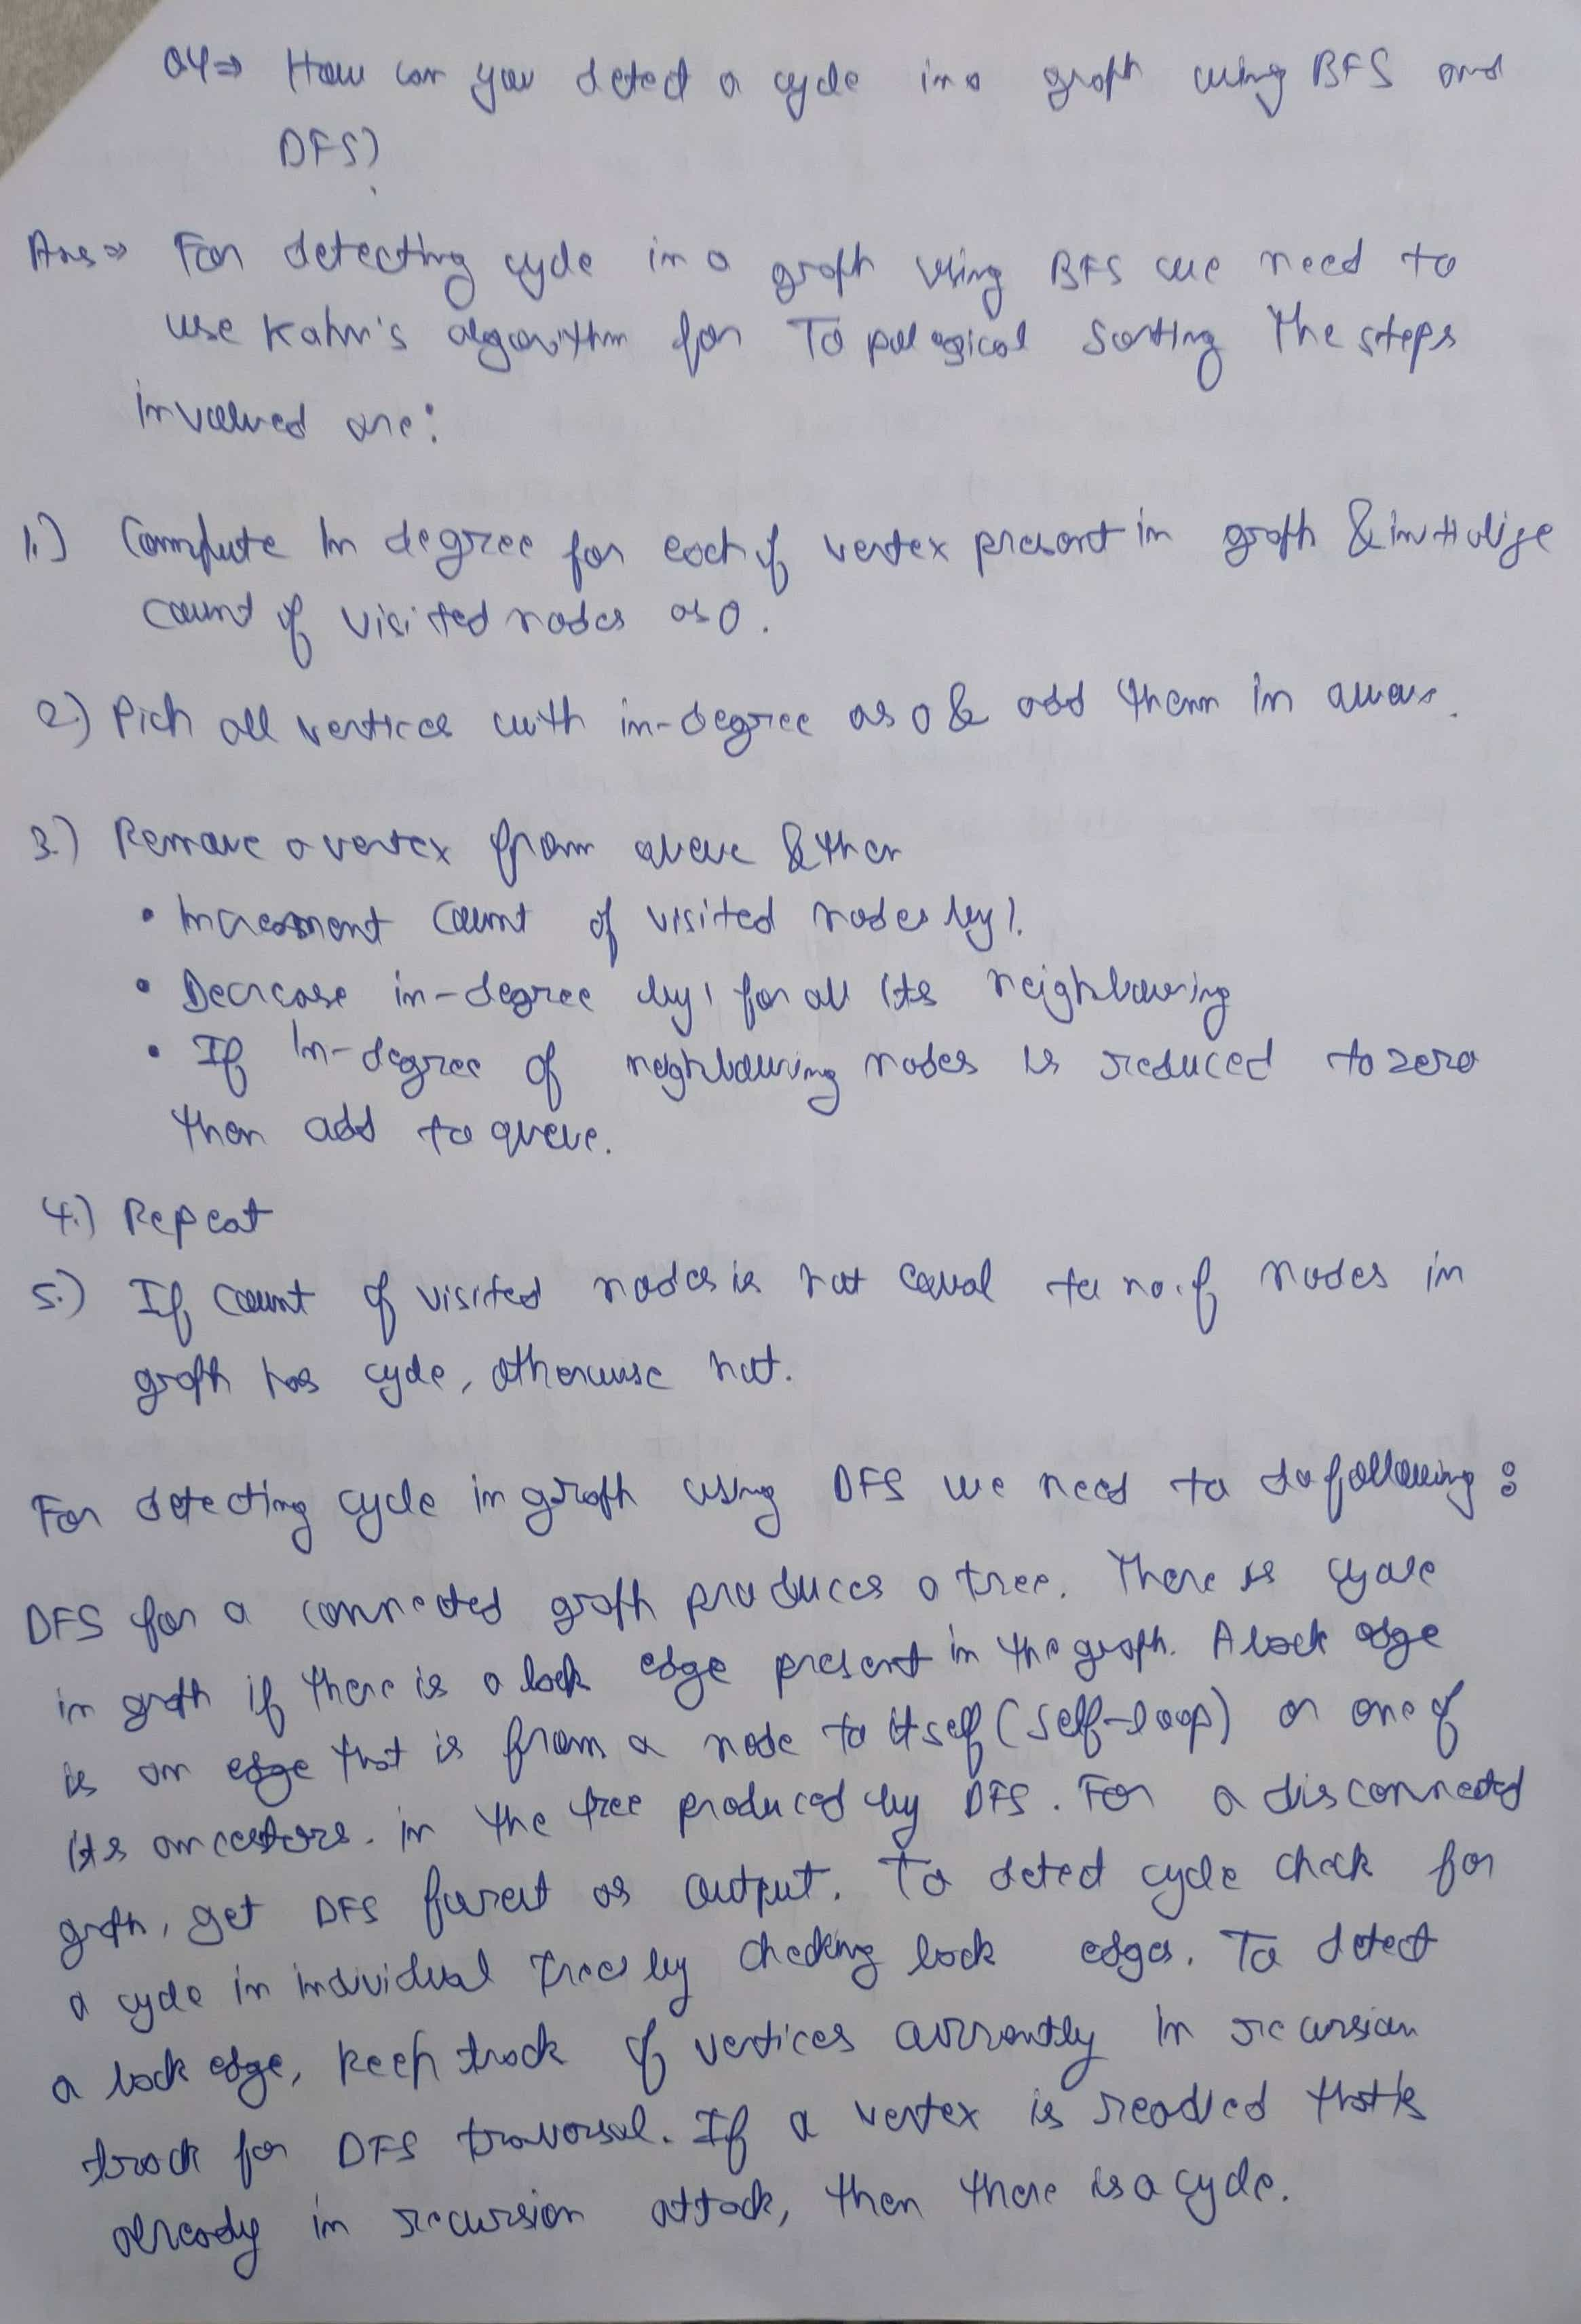 Q4⇒ How can you detect a cycle in a graph using BFS and
DFS?
Ans⇒ For detecting cycle in a graph using BFS we need to
use Kahn's algorithm for Topological Sorting The steps
involved are:
1.) Compute In degree for each of vertex present in graph & initialize
count of visited nodes as 0.
2.) Pick all vertices with in-degree as 0 & add them in queue.
3.) Remove a vertex from queue & then
• Increament count of visited nodes by 1.
• Decrease in-degree by 1 for all its neighbouring
• If In-degree of neighbouring nodes is reduced to zero
then add to queue.
4.) Repeat
5.) If count of visited nodes is not equal to no. of nodes in
graph has cycle, otherwise not.
For detecting cycle in graph using DFS we need to do following:
DFS for a connected graph produces a tree. There is cycle
in graph if there is a back edge present in the graph. A back edge
is an edge that is from a node to itself (self-loop) or one of
its ancestors. in the tree produced by DFS. For a disconnected
graph, get DFS forest as output. To detect cycle check for
a cycle in individual trees by checking back edges. To detect
a back edge, keep track of vertices currently in recursion
track for DFS traversal. If a vertex is reached that is
already in recursion attack, then there is a cycle.